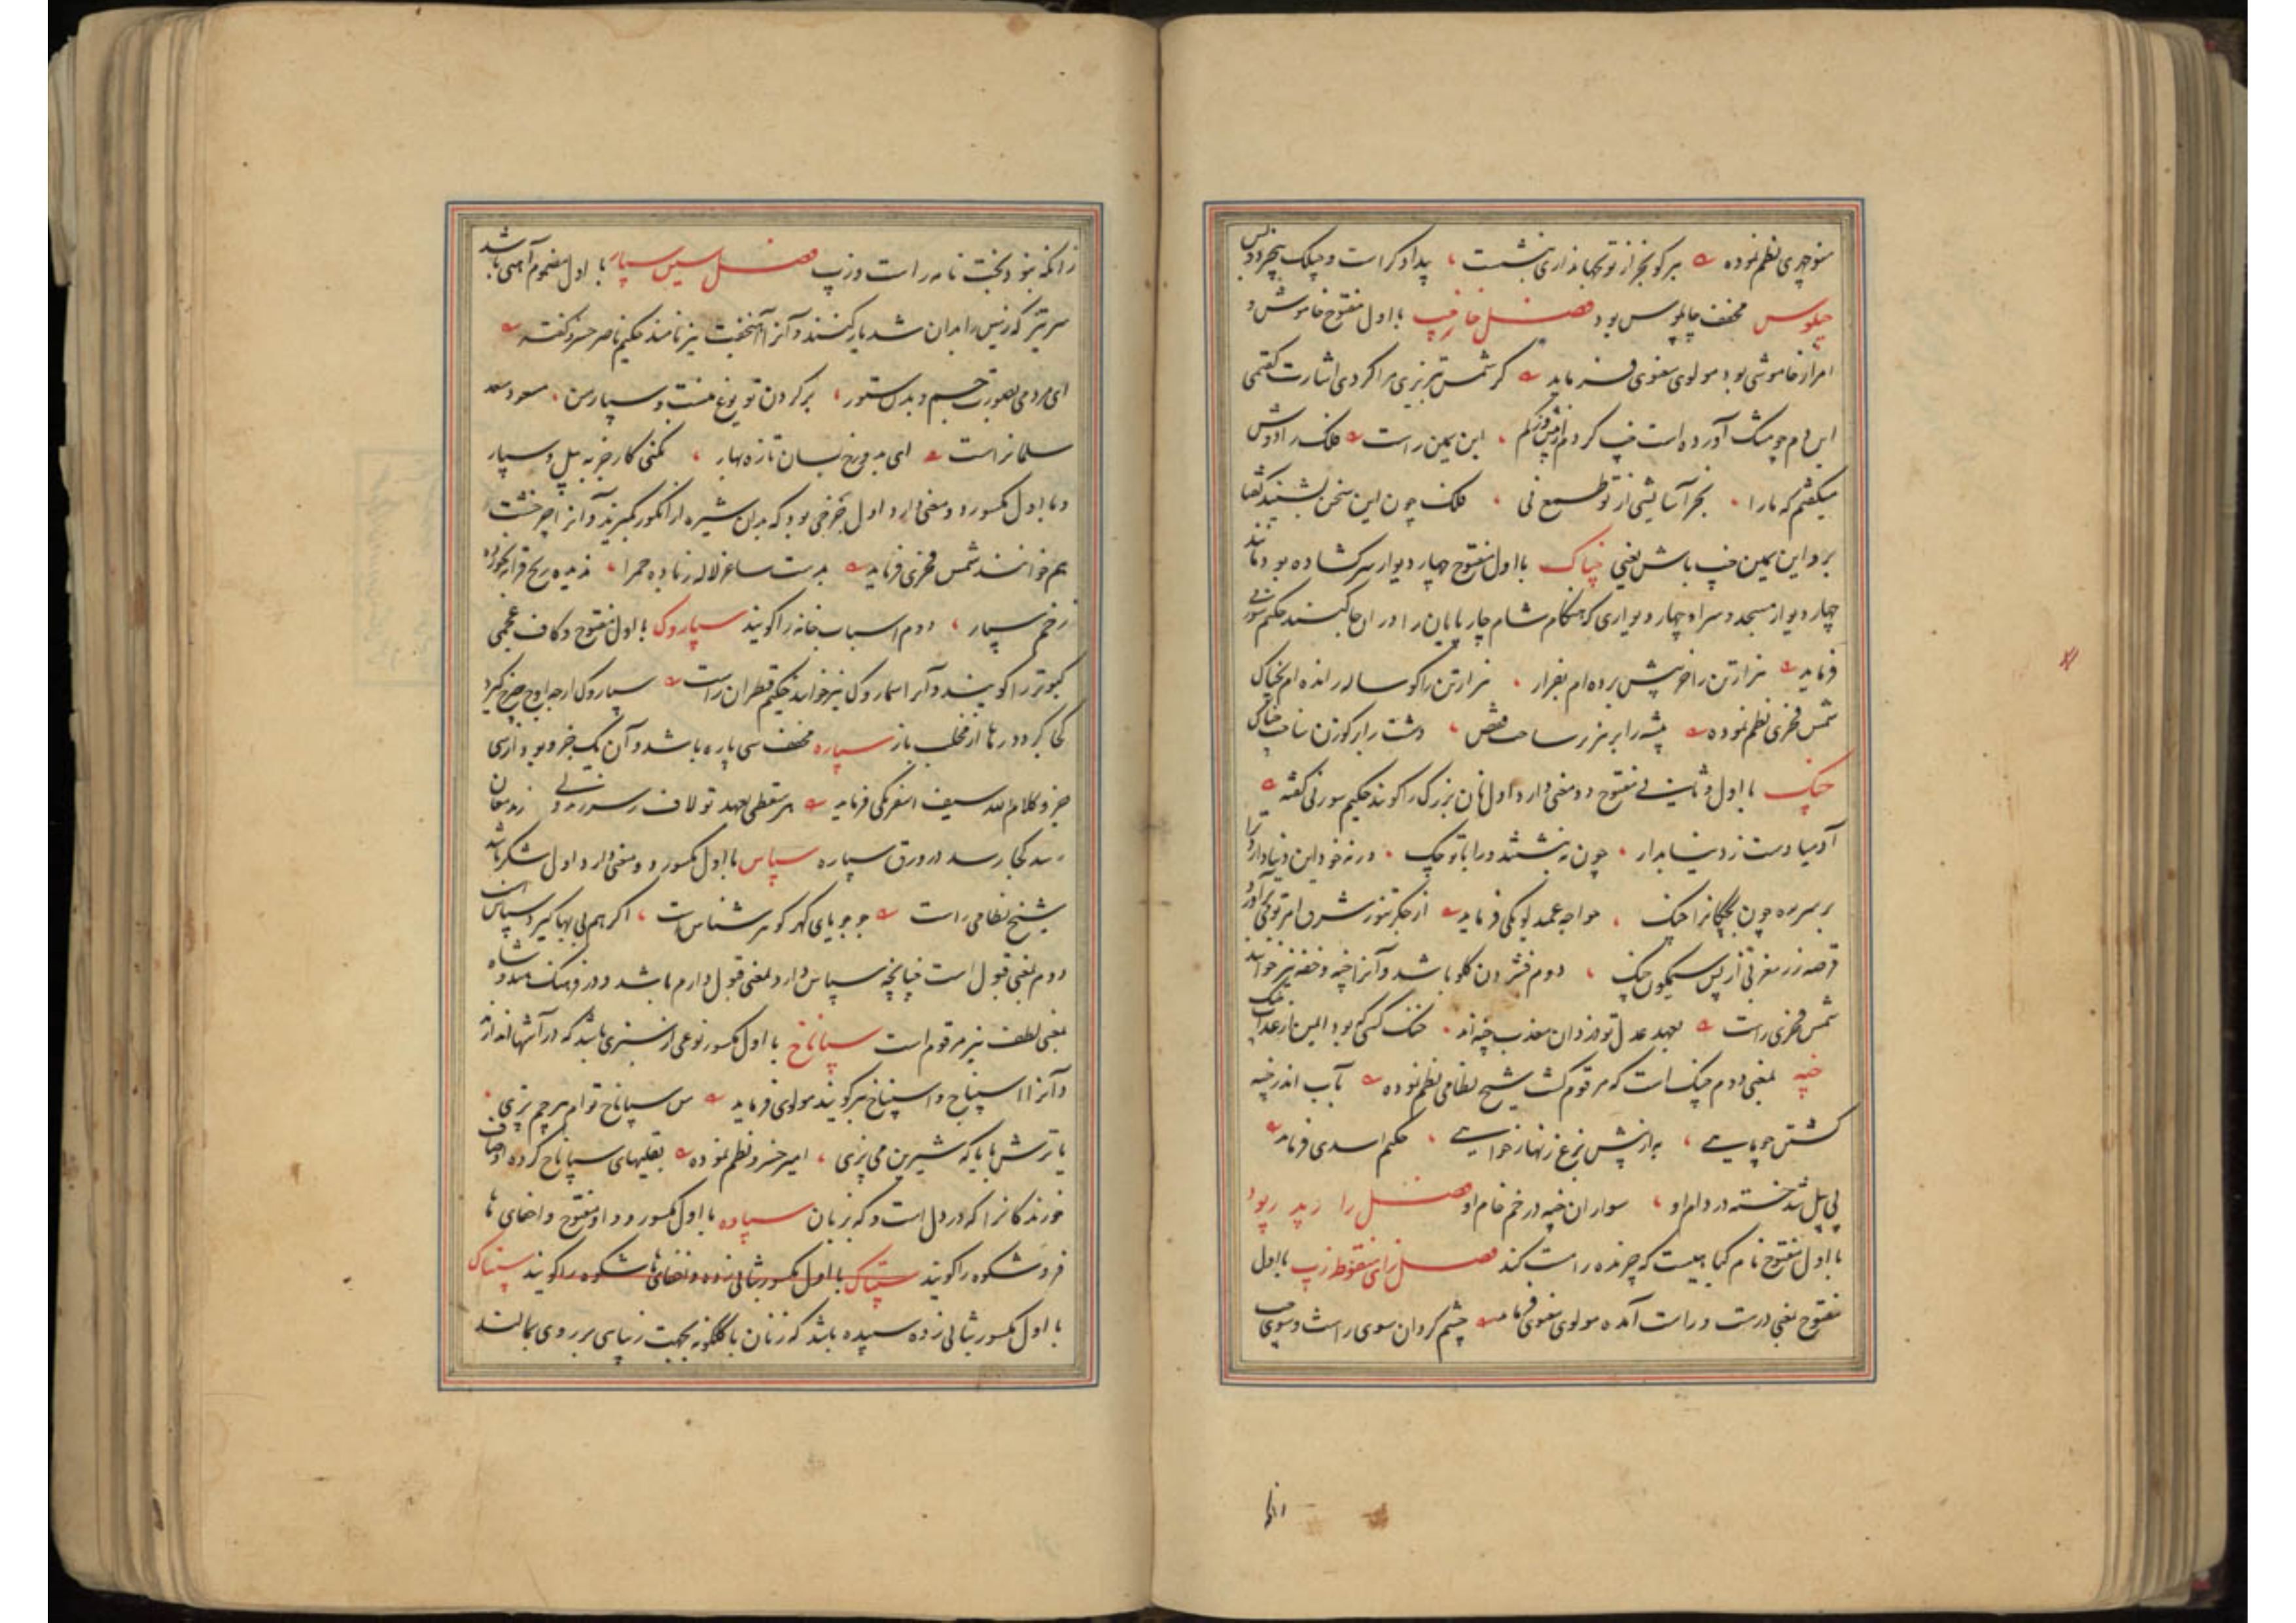 منوچهری نظم نموده
چپلوس مخفف چاپلوس بود فصل خا خپ با اول مفتوح خاموش و
امر از خاموشی بود مولوی معنوی فرماید کر شمس تبریزی مرا کردی اشارت کفتمی
این دم چو مشک آورده است خپ کردم ابن یمین راست فلک را دوش
میکفتم که ما را بجز آسایشی از تو طمع نی فلک چون این سخن بشنید کفتا
برو ابن یمین خپ باش یعنی خپاک با اول مفتوح چهار دیوار سرکشاده بود مانند
چهار دیوار مسجد و سراه چهار دیواری که هنکام شام چارپایان را در آن جا کنند حکیم سوزنی
فرماید هزار تن را خر پیش برده ام بفرار هزار تن را کوساله رانده ام بخپاک
شمس فخری نظم نموده بیشه را بر هزبر ساحت قفص دشت را بر کوزن ساخت خپاک
خپک با اول و ثانی مفتوح دو معنی دارد اول نان بزرک را کویند حکیم سوزنی کفته
آدمیا دست ز دنیا بدار چون نه نشستند در ابا تو چک ورنه خود این دنیا دار ترا
بر سر ره چون بچکانرا خپک خواجه عمید لویکی فرماید از جکر تنور شرق
قرصه زر مغربی از پس سیمکون خپک دوم فشردن کلو باشد و آنرا خپه و خفه نیز خوانند
شمس فخری راست بعهد عدل تو دزدان معذب خپه اند خنک کسی که بود ایمن از عذاب خپک
خپه بمعنی دوم خپک است که مرقوم کشت شیخ نظامی نظم نموده بآب اندر خپه
کشتن چو ماهی به از پیش بزغ زنهار خواهی حکیم اسدی فرماید
پی پیل شد خسته در دام او سواران خپه در خم خام او فصل را رپد رپود
با اول مفتوح نام کیاهیست که چرنده را مست کند فصل زای منقوطه زپ با اول
مفتوح بمعنی درست و راست آمده مولوی معنوی فرماید چشم کردان سوی راست و سوی چپ
زانکه نبود بخت نامه راست و زپ فصل سین سپار با اول مضموم آهنی باشد
سر تیز که زمین را بدان شدیار کنند و آنرا آهنجفت نیز نامند حکیم ناصر خسرو کفته
ای مردمی بصورت جسم و بدل ستور بر کردن تو یوغ منست و سپار من مسعود سعد
سلمانراست ای برخ بسان تازه بهار نکنی کار جز به بیل و سپار
و با اول مکسور دو معنی دارد اول چرخی بود که بدان شیره از انکور کیرند و آنرا چرخشت
هم خوانند شمس فخری فرماید بدست ساغر لاله ز باده حمرا ندیده رنج قرابه نخورده
زخم سپار دوم اسباب خانه را کویند سپاروک با اول مفتوح و کاف عجمی
کبوتر را کویند و آنرا سماروک نیز خوانند حکیم قطران راست سپاروک ارچه اوج چرخ کیرد
کجا کردد رها از مخلب باز سپاره مخفف سی پاره باشد و آن یک جزو بود از سی
جزو کلام الله سیف اسفرنکی فرماید هر سقطی بعهد تو لاف
رسد کجا رسد در ورق سپاره سپاس با اول مکسور دو معنی دارد اول شکر باشد
شیخ نظامی راست جو جویای کهر کوهر شناس است اکر هم بی بها کیرد سپاس است
دوم بمعنی قبول است چنانچه سپاس دارد بمعنی قبول دارم باشد و در فرهنک هندوشاه
بمعنی لطف نیز مرقوم است سپاناخ با اول مکسور نوعی از سبزی باشد که در آشها اندازند
و آنرا اسپناج و اسپناخ نیز کویند مولوی فرماید من سپاناخ توام هر چم پزی
یا ترش با یا که شیرین می پزی امیر خسرو نظم نموده بقلیهای سپاناخ کرده اوصاف
خورند کانرا که در دل است و که زبان سپاوه با اول مکسور و واو مفتوح و اخفای ها
فر و شکوه را کویند سپتاک با اول مکسور بثانی زده و اخفای ها شکوه را کویند سپتاک
با اول مکسور بثانی زده سپیده باشد که زنان با کلکونه بجهت زیبایی بر روی بمالند